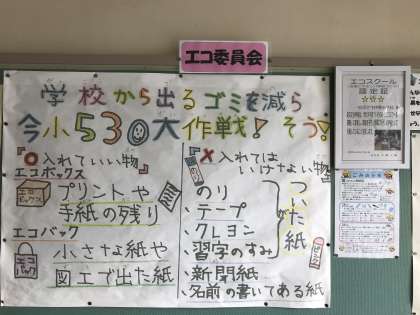 エコ委員会
学校から出るゴミを減らそう!
今小530大作戦!
『○入れていい物』
エコボックス
エコボックス
プリントや
手紙の残り
エコバック
エコバック
小さな紙や
図工で出た紙
『×入れては
いけない物』
・のり
・テープ
・クレヨン
・習字のすみ
ついた紙
・新聞紙
・名前の書いてある紙
エコスクール
認定証
☆☆☆